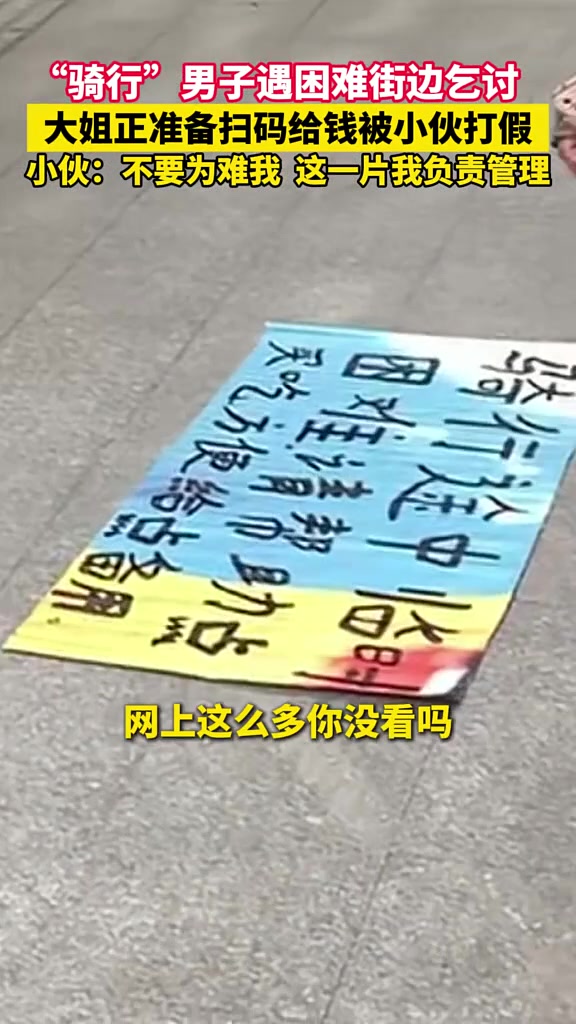 “骑行”男子遇困难街边乞讨
大姐正准备扫码给钱被小伙打假
小伙：不要为难我 这一片我负责管理
骑行途中临时
困难请帮助点
买吃方便给点备用
网上这么多你没看吗